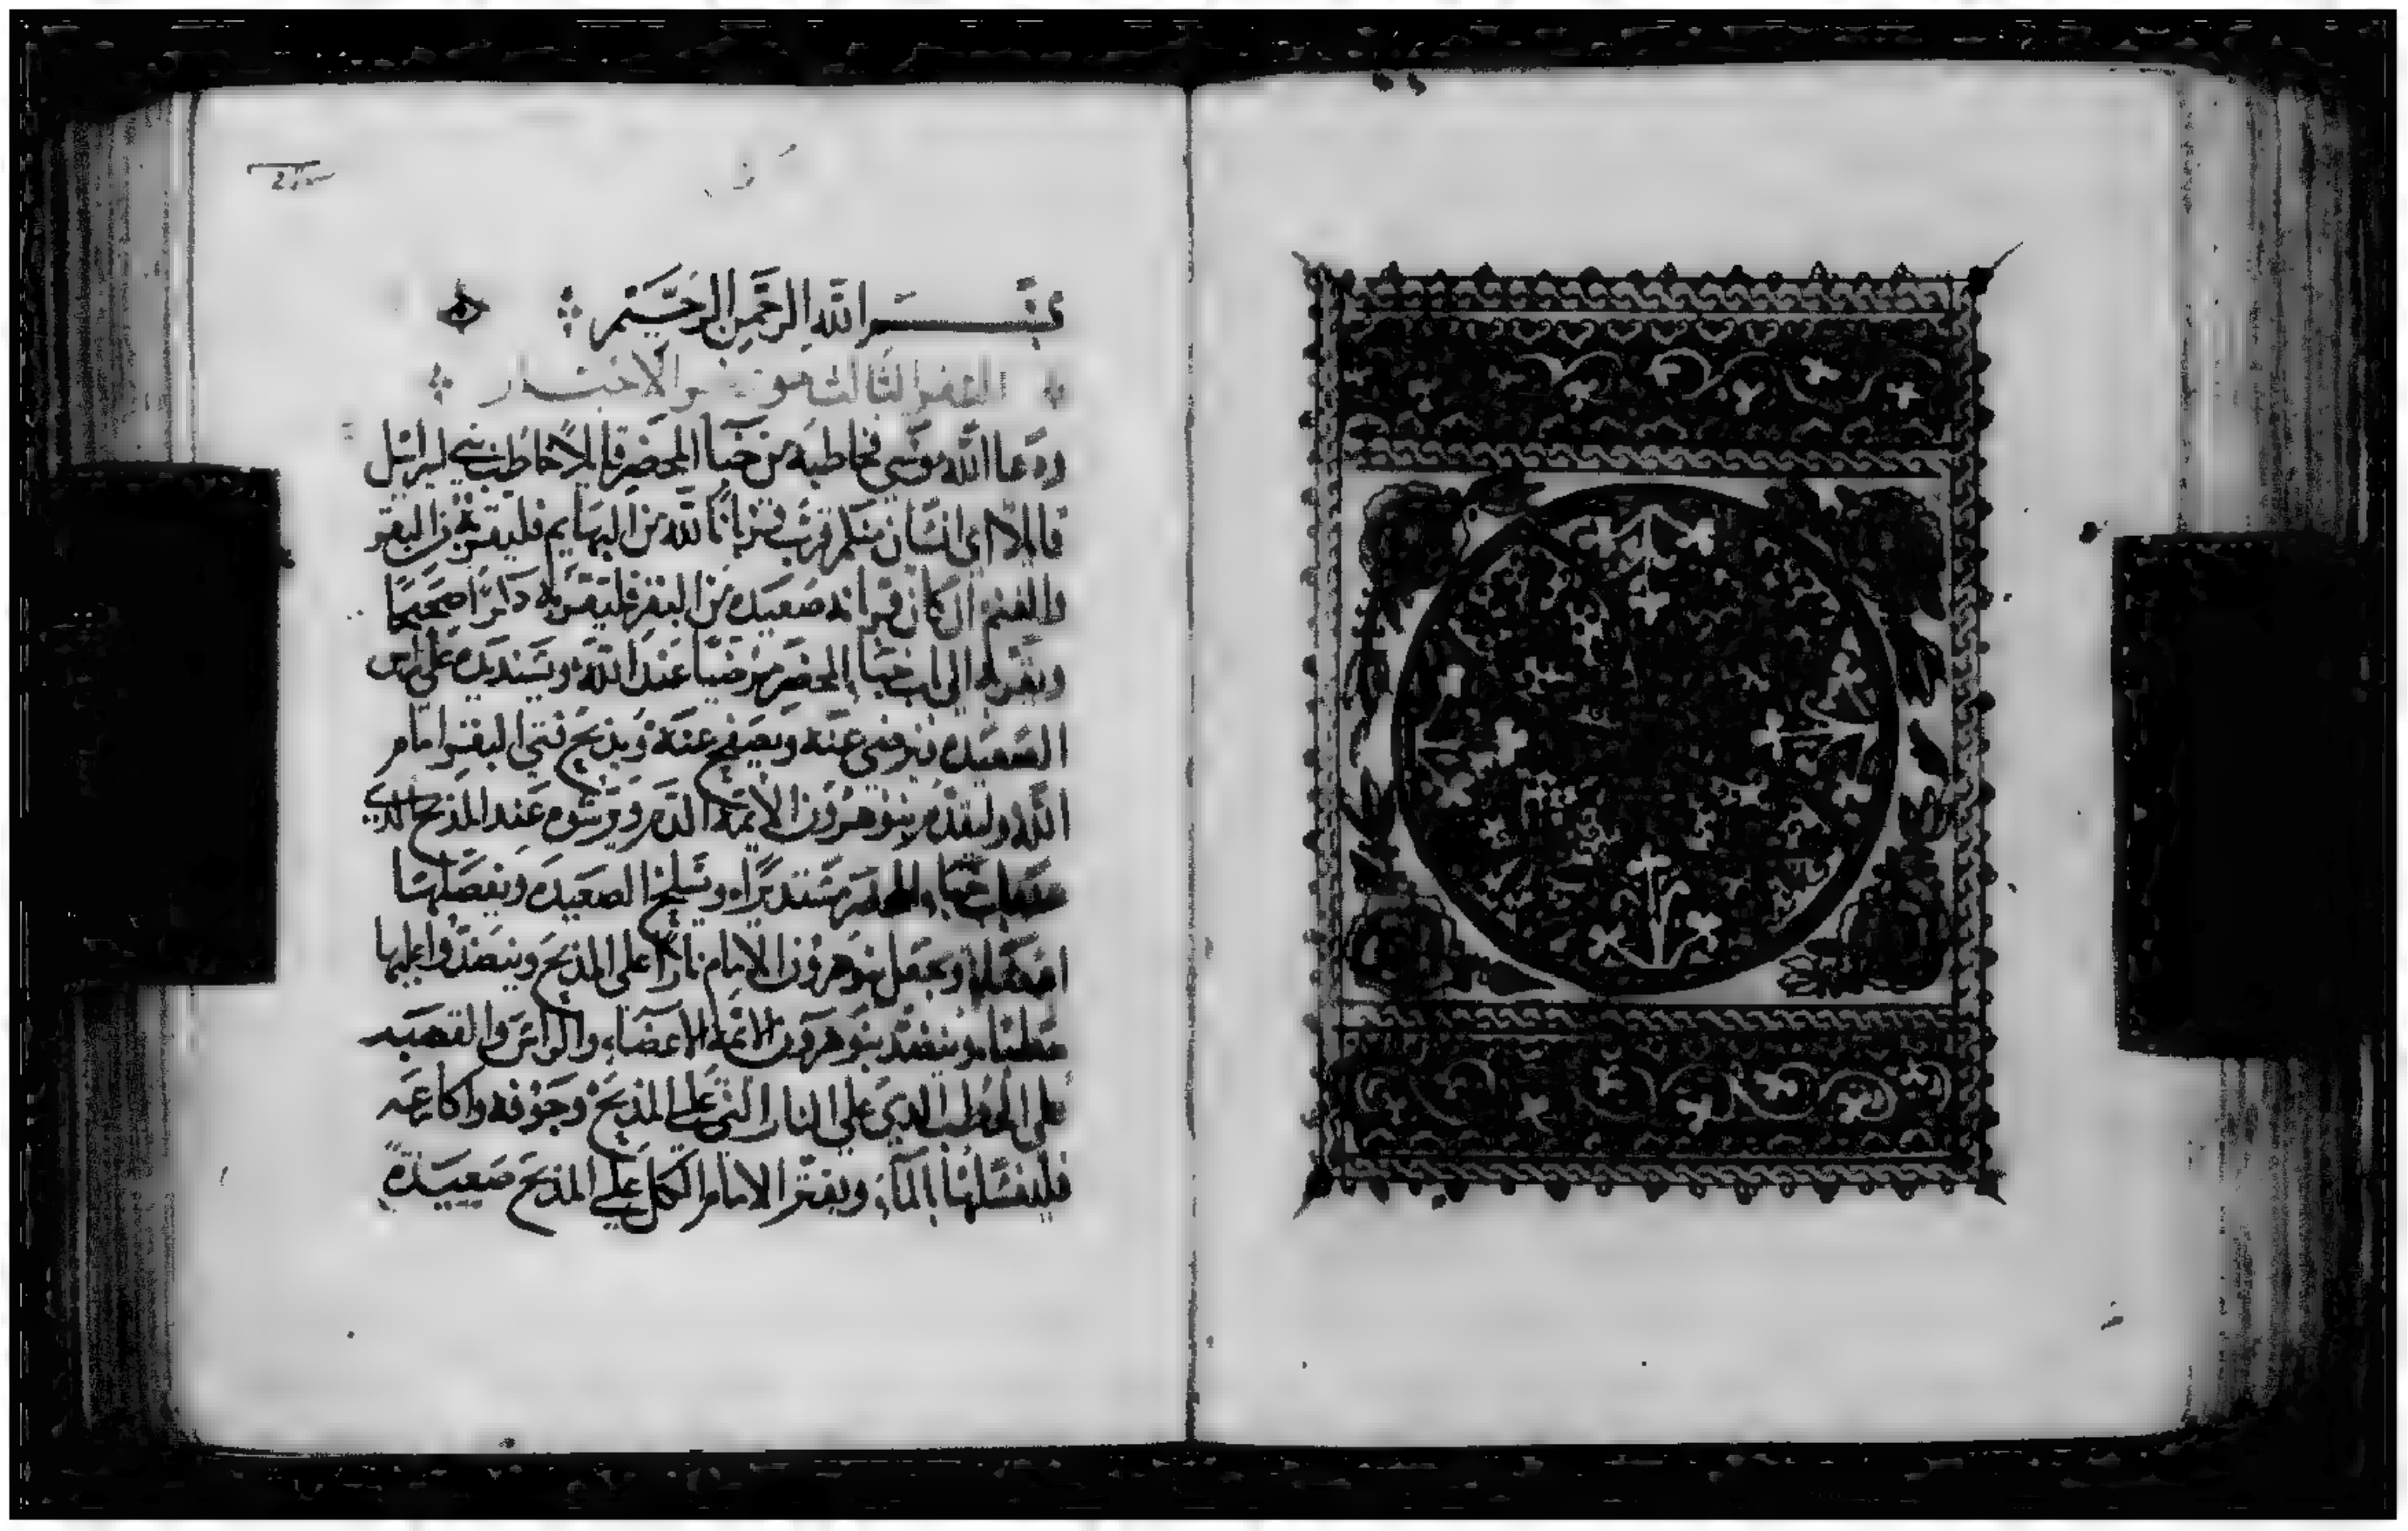 بسم الله الرحمن الرحيم
السفر الثالث وهو سفر الاحبار
ودعا الله موسى فخاطبه من خبا المحضر قايلا خاطب بني اسرايل
قايلا اي انسان منكم قرب قربانا لله من البهايم فليقربه من البقر
والغنم ان كان قربانه صعيده من البقر فليقربه ذكرا صحيحا
ويقربه الى باب خبا المحضر مرضيا عند الله ويسند يده على راس
الصعيده فيرضى عنه ويصفح عنه ويذبح فتي البقر امام
الله وليقدم بنو هرون الايمه الدم ويرشوه عند المذبح الذي
عند باب خبا المحضر مستديرا وتسلخ الصعيده ويفصلها
اعضاها ويجعل بنو هرون الامام نارا على المذبح وينضدوا عليها
حطبا وينضد بنو هرون الايمه الاعضاء والراس والقصبه
على الحطب الذي على النار التي على المذبح وجوفه واكارعه
فليغسلها بالماء ويقتر الامام الكل على المذبح صعيدة